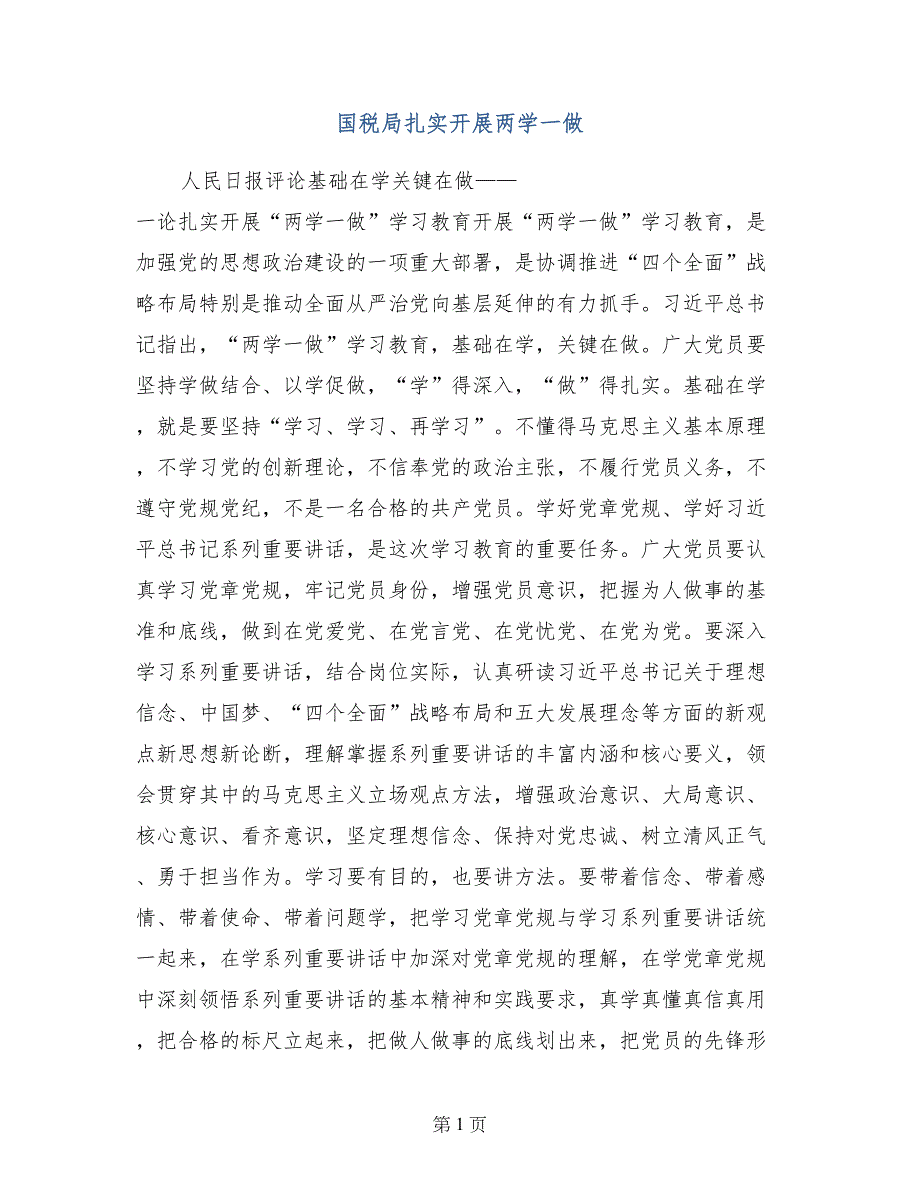 国税局扎实开展两学一做
人民日报评论基础在学关键在做——
一论扎实开展“两学一做”学习教育开展“两学一做”学习教育，是
加强党的思想政治建设的一项重大部署，是协调推进“四个全面”战
略布局特别是推动全面从严治党向基层延伸的有力抓手。习近平总书
记指出，“两学一做”学习教育，基础在学，关键在做。广大党员要
坚持学做结合、以学促做，“学”得深入，“做”得扎实。基础在学
，就是要坚持“学习、学习、再学习”。不懂得马克思主义基本原理
，不学习党的创新理论，不信奉党的政治主张，不履行党员义务，不
遵守党规党纪，不是一名合格的共产党员。学好党章党规、学好习近
平总书记系列重要讲话，是这次学习教育的重要任务。广大党员要认
真学习党章党规，牢记党员身份，增强党员意识，把握为人做事的基
准和底线，做到在党爱党、在党言党、在党忧党、在党为党。要深入
学习系列重要讲话，结合岗位实际，认真研读习近平总书记关于理想
信念、中国梦、“四个全面”战略布局和五大发展理念等方面的新观
点新思想新论断，理解掌握系列重要讲话的丰富内涵和核心要义，领
会贯穿其中的马克思主义立场观点方法，增强政治意识、大局意识、
核心意识、看齐意识，坚定理想信念、保持对党忠诚、树立清风正气
、勇于担当作为。学习要有目的，也要讲方法。要带着信念、带着感
情、带着使命、带着问题学，把学习党章党规与学习系列重要讲话统
一起来，在学系列重要讲话中加深对党章党规的理解，在学党章党规
中深刻领悟系列重要讲话的基本精神和实践要求，真学真懂真信真用
，把合格的标尺立起来，把做人做事的底线划出来，把党员的先锋形
第 1 页